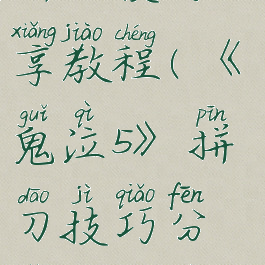 xiǎng jiào chéng
享教程(《
guǐ qì pīn
鬼泣5》拼
dāo jì qiǎo fēn
刀技巧分